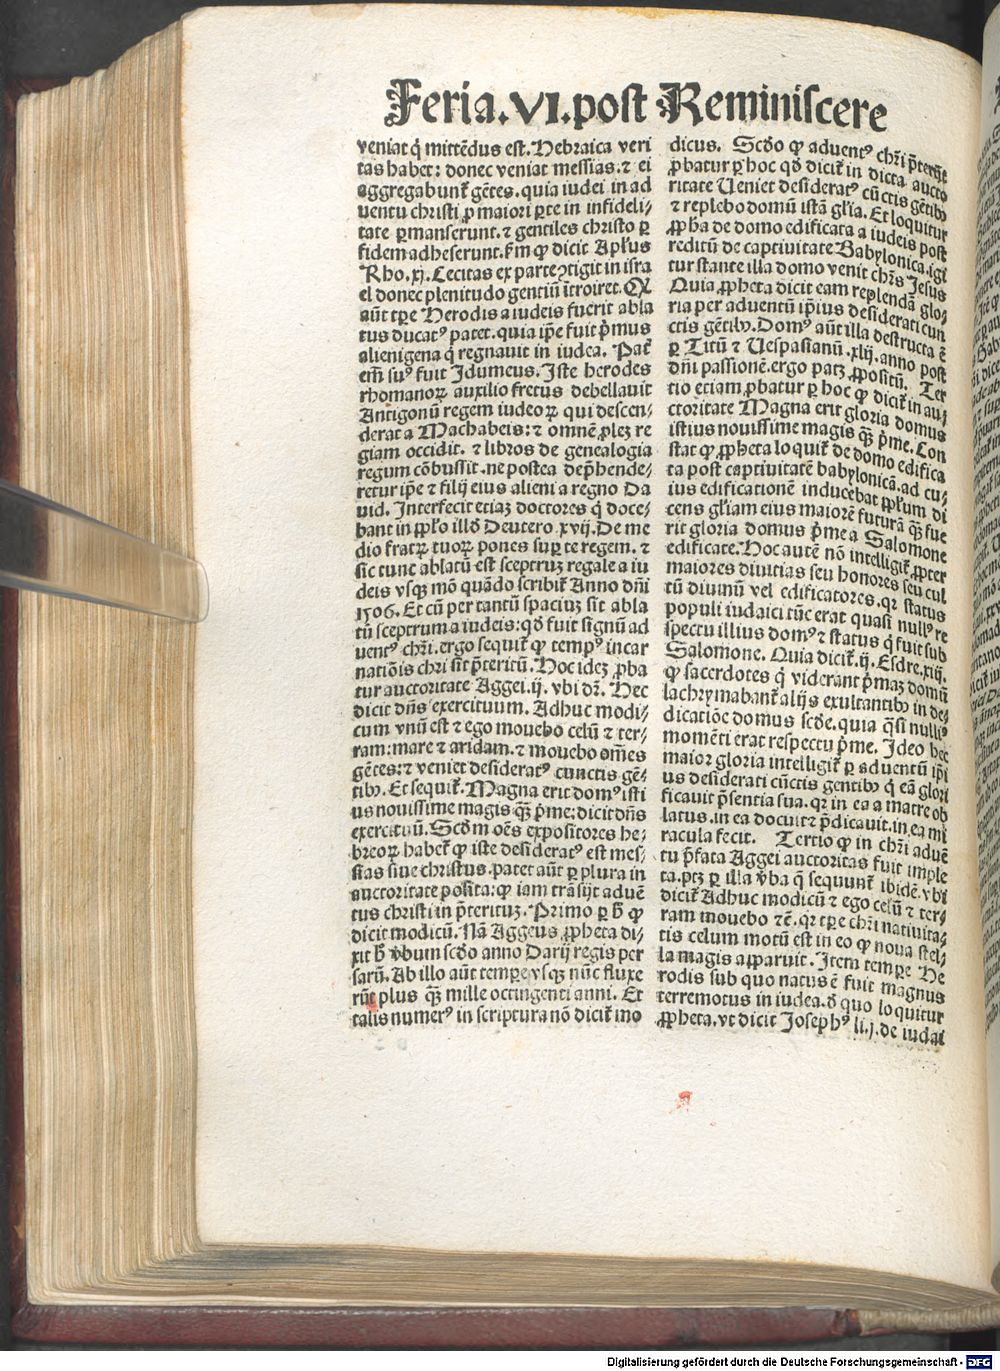 Feria.VI.post Reminiscere
veniat q̇ mittẽdus est. Hebraica veri
tas habet: donec veniat messias: ⁊ ei
aggregabunt̃ gẽtes. quia iudei in ad
uentu christi ꝓ maiori ꝑte in infideli⸗
tate ꝑmanserunt. ⁊ gentiles christo ꝑ
fidem adheserunt. ẜm ꝙ dicit Apl̃us
Rho. xj. Cecitas ex parte ꝯtigit in isra
el donec plenitudo gentiũ ĩtroiret. Qꝫ
aũt tꝑe Herodis a iudeis fuerit abla
tus ducatꝰ patet. quia ip̃e fuit p̃mus
alienigena q̇ regnauit in iudea. Pat̃
em̃ suꝰ fuit Idumeus. Iste herodes
rhomanoꝝ auxilio fretus debellauit
Antigonũ regem iudeoꝝ qui descen⸗
derat a Machabeis: ⁊ omnẽ ꝓlez re
giam occidit. ⁊ libros de genealogia
regum cõbussit. ne postea dep̃hende⸗
retur ip̃e ⁊ filij eius alieni a regno Da
uid. Interfecit etiaz doctores q̇ doce⸗
bant in pp̃lo illđ Deutero. xvij. De me
dio fratꝝ tuoꝝ pones suꝑ te regem. ⁊
sic tunc ablatũ est sceptruz regale a iu
deis vsqꝫ mõ quãdo scribit̃ Anno dñi
1506. Et cũ per tantũ spaciuz sit abla
tũ sceptrum a iudeis: qđ fuit signũ ad
uentꝰ chr̃i. ergo sequit̃ ꝙ tempꝰ incar
natiõis chr̃i sit p̃teritũ. Hoc idez ꝓba
tur auctoritate Aggei. ij. vbi dr̃. Hec
dicit dñs exercituum. Adhuc modi⸗
cum vnũ est ⁊ ego mouebo celũ ⁊ ter⸗
ram: mare ⁊ aridam. ⁊ mouebo om̃es
gẽtes: ⁊ veniet desideratꝰ cunctis gẽ⸗
tibꝰ. Et sequit̃. Magna erit domꝰ isti
us nouissime magis qꝫ̃ p̃me: dicit dñs
exercituũ. Scđm oẽs expositores he⸗
breoꝝ habet̃ ꝙ iste desideratꝰ est mes⸗
sias siue christus. patet aũt ꝑ plura in
auctoritate posita: ꝙ iam trãsijt aduẽ
tus christi in p̃teritũ. Primo ꝑ h̃ ꝙ
dicit modicũ. Nã Aggeus ꝓpheta di⸗
xit h̃ v̓bum scđo anno Darij regis per
sarũ. Ab illo aũt tempe vsqꝫ nũc fluxe
rũt plus qꝫ̃ mille octingenti anni. Et
talis numerꝰ in scriptura nõ dicit̃ mo
dicus. Scđo ꝙ aduentꝰ chr̃i p̃terijt
ꝓbatur ꝑ hoc qđ dicit̃ in dicta aucto
ritate Ueniet desideratꝰ cũctis gẽtibꝰ
⁊ replebo domũ istã gl̃ia. Et loquitur
ꝓph̃a de domo edificata a iudeis post
reditũ de captiuitate Babylonica. igi
tur stante illa domo venit chr̃s Jesus
Quia ꝓpheta dicit eam replendã glo⸗
ria per aduentũ ip̃ius desiderati cun
ctis gẽtibꝰ. Domꝰ aũt illa destructa ẽ
ꝑ Titũ ⁊ Uespasianũ. xlij. anno post
dñi passionẽ. ergo patz ꝓpositũ. Ter
tio etiam ꝓbatur ꝑ hoc ꝙ dicit̃ in au⸗
ctoritate Magna erit gloria domus
istius nouissime magis qꝫ̃ p̃me. Con
stat ꝙ ꝓpheta loquit̃ de domo edifica
ta post captiuitatẽ babylonicã. ad cu⸗
ius edificationẽ inducebat pp̃lum di
cens gl̃iam eius maiorẽ futurã qꝫ̃ fue
rit gloria domus p̃me a Salomone
edificate. Hoc autẽ nõ intelligit̃ ꝓpter
maiores diuitias seu honores seu cul
tũ diuinũ vel edificatores. qꝛ status
populi iudaici tũc erat quasi nullꝰ re
spectu illius domꝰ ⁊ status q̇ fuit sub
Salomone. Quia dicit̃. ij. Esdre. xiij.
ꝙ sacerdotes q̇ viderant p̃maz domũ
lachrymabant̃ alijs exultantibꝰ in de⸗
dicatiõe domus scđe. quia q̃si nulliꝰ
momẽti erat respectu p̃me. Ideo hec
maior gloria intelligit̃ ꝑ aduentũ ip̃i
us desiderati cũctis gentibꝰ q̇ eã glori
ficauit p̃sentia sua. qꝛ in ea a matre ob
latus. in ea docuit ⁊ p̃dicauit. in ea mi
racula fecit. Tertio ꝙ in chr̃i aduẽ
tu p̃fata Aggei auctoritas fuit imple
ta. ptz ꝑ illa v̓ba q̃ sequunt̃ ibidẽ. vbi
dicit̃ Adhuc modicũ ⁊ ego celũ ⁊ ter⸗
ram mouebo ⁊c̃. qꝛ tꝑe chr̃i natiuita⸗
tis celum motũ est in eo ꝙ noua stel⸗
la magis apparuit. Item tempe He
rodis sub quo natus ẽ fuit magnus
terremotus in iudea. đ quo loquitur
ꝓpheta. vt dicit Josephꝰ li. j. de iudai
Digitalisierung gefördert durch die Deutsche Forschungsgemeinschaft - DFG